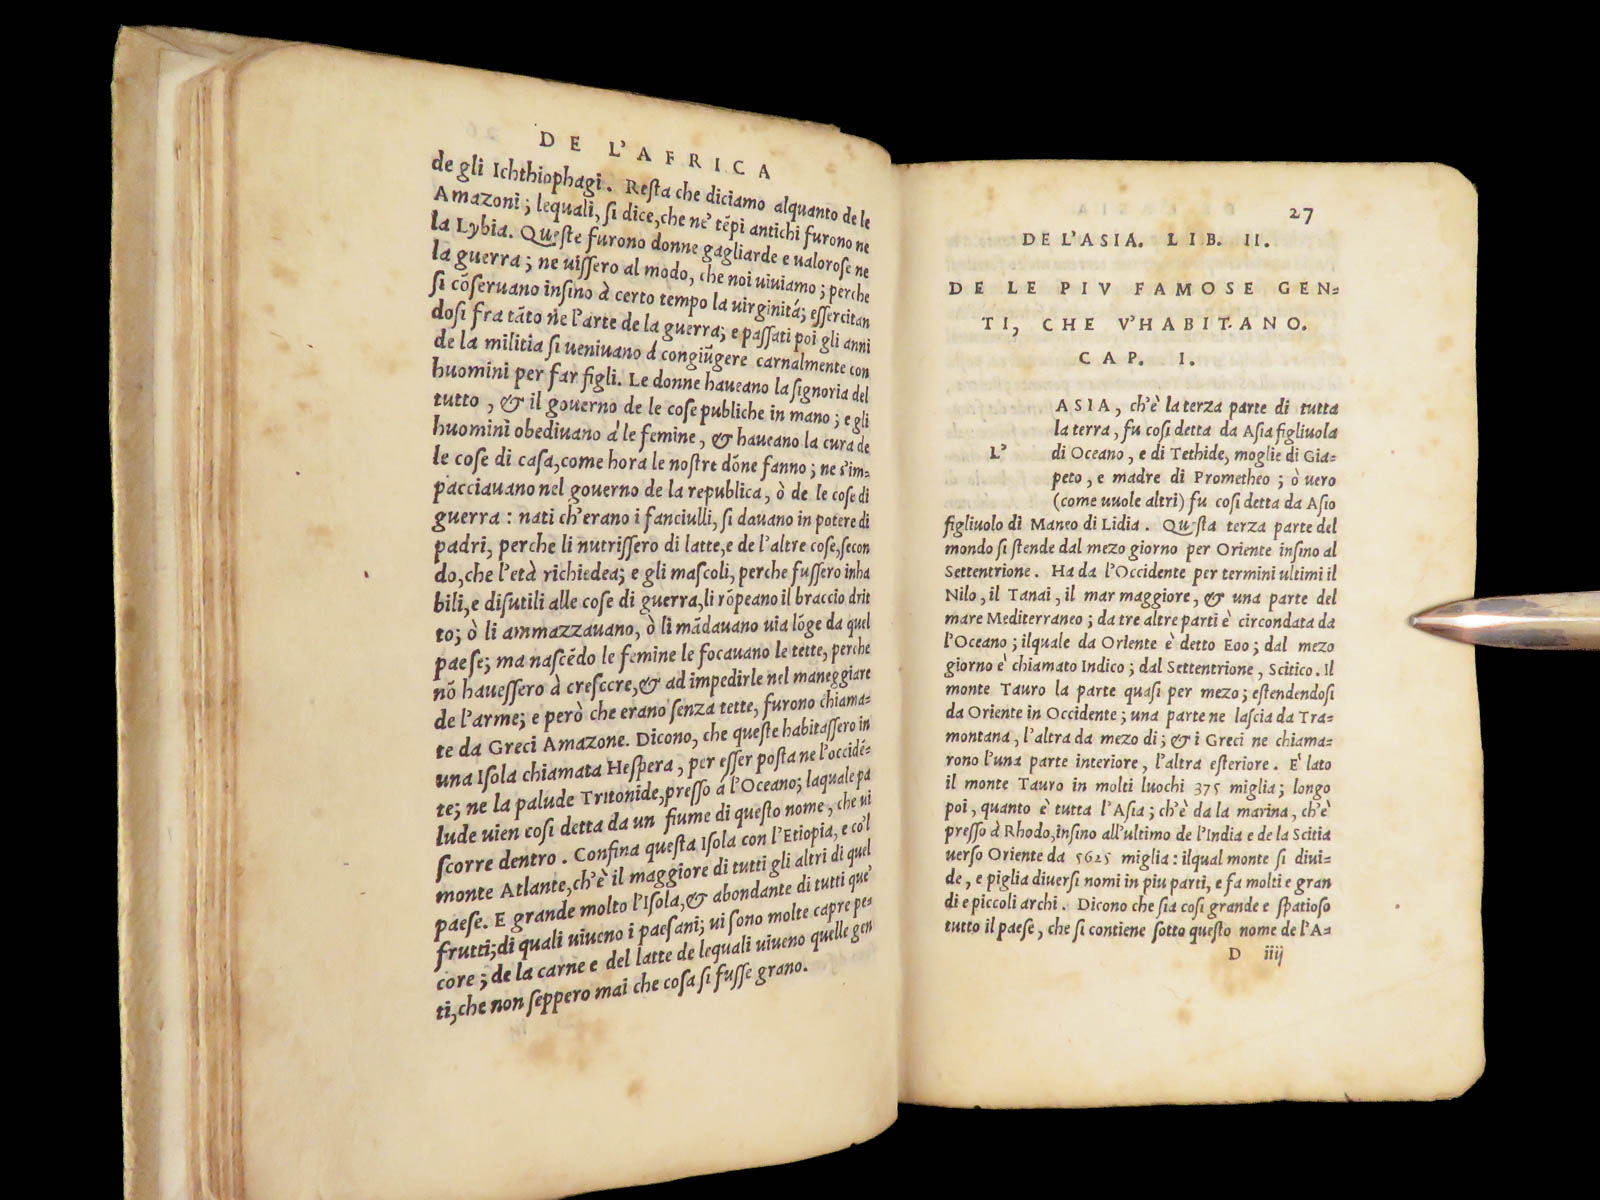 DE L'AFRICA
de gli Ichthiophagi. Resta che diciamo alquanto de le
Amazoni; lequali, si dice, che ne' tẽpi antichi furono ne
la Lybia. Queste furono donne gagliarde e ualorose ne
la guerra; ne uissero al modo, che noi uiuiamo; perche
si cõseruano insino à certo tempo la uirginitá; essercitan
dosi fra tãto ne l'arte de la guerra; e passati poi gli anni
de la militia si ueniuano á congiũgere carnalmente con
huomini per far figli. Le donne haueano la signoria del
tutto, & il gouerno de le cose publiche in mano; e gli
huomini obediuano á le femine, & haueano la cura de
le cose di casa, come hora le nostre dõne fanno; ne s'im-
pacciauano nel gouerno de la republica, ò de le cose di
guerra: nati ch'erano i fanciulli, si dauano in potere di
padri, perche li nutrissero di latte, e de l'altre cose, secon
do, che l'età richiedea; e gli mascoli, perche fussero inha
bili, e disutili alle cose di guerra, li rõpeano il braccio drit
to; ò li ammazzauano, ò li mãdauano uia lõge da quel
paese; ma nascẽdo le femine le focauano le tette, perche
nõ hauessero à crescere, & ad impedirle nel maneggiare
de l'arme; e però che erano senza tette, furono chiama-
te da Greci Amazone. Dicono, che queste habitassero in
una Isola chiamata Hespera, per esser posta ne l'occidẽ-
te; ne la palude Tritonide, presso á l'Oceano; laquale pa
lude uien cosi detta da un fiume di questo nome, che ui
scorre dentro. Confina questa Isola con l'Etiopia, e co'l
monte Atlante, ch'è il maggiore di tutti gli altri di quel
paese. E grande molto l'Isola, & abondante di tutti que'
frutti; di quali uiueno i paesani; ui sono molte capre pe-
core; de la carne e del latte de lequali uiueno quelle gen
ti, che non seppero mai che cosa si fusse grano.
27
DE L'ASIA. LIB. II.
DE LE PIV FAMOSE GEN-
TI, CHE V'HABITANO.
CAP. I.
L'ASIA, ch'è la terza parte di tutta
la terra, fu cosi detta da Asia figliuola
di Oceano, e di Tethide, moglie di Gia-
peto, e madre di Prometheo; ò uero
(come uuole altri) fu cosi detta da Asio
figliuolo di Maneo di Lidia. Questa terza parte del
mondo si stende dal mezo giorno per Oriente insino al
Settentrione. Ha da l'Occidente per termini ultimi il
Nilo, il Tanai, il mar maggiore, & una parte del
mare Mediterraneo; da tre altre parti è circondata da
l'Oceano; ilquale da Oriente è detto Eoo; dal mezo
giorno è chiamato Indico; dal Settentrione, Scitico. Il
monte Tauro la parte quasi per mezo; estendendosi
da Oriente in Occidente; una parte ne lascia da Tra-
montana, l'altra da mezo di; & i Greci ne chiama-
rono l'una parte interiore, l'altra esteriore. E' lato
il monte Tauro in molti luochi 375 miglia; longo
poi, quanto è tutta l'Asia; ch'è da la marina, ch'è
presso à Rhodo, insino all'ultimo de l'India e de la Scitia
uerso Oriente da 5625 miglia: ilqual monte si diui-
de, e piglia diuersi nomi in piu parti, e fa molti e gran
di e piccoli archi. Dicono che sia cosi grande e spatioso
tutto il paese, che si contiene sotto questo nome de l'A-
D iiij